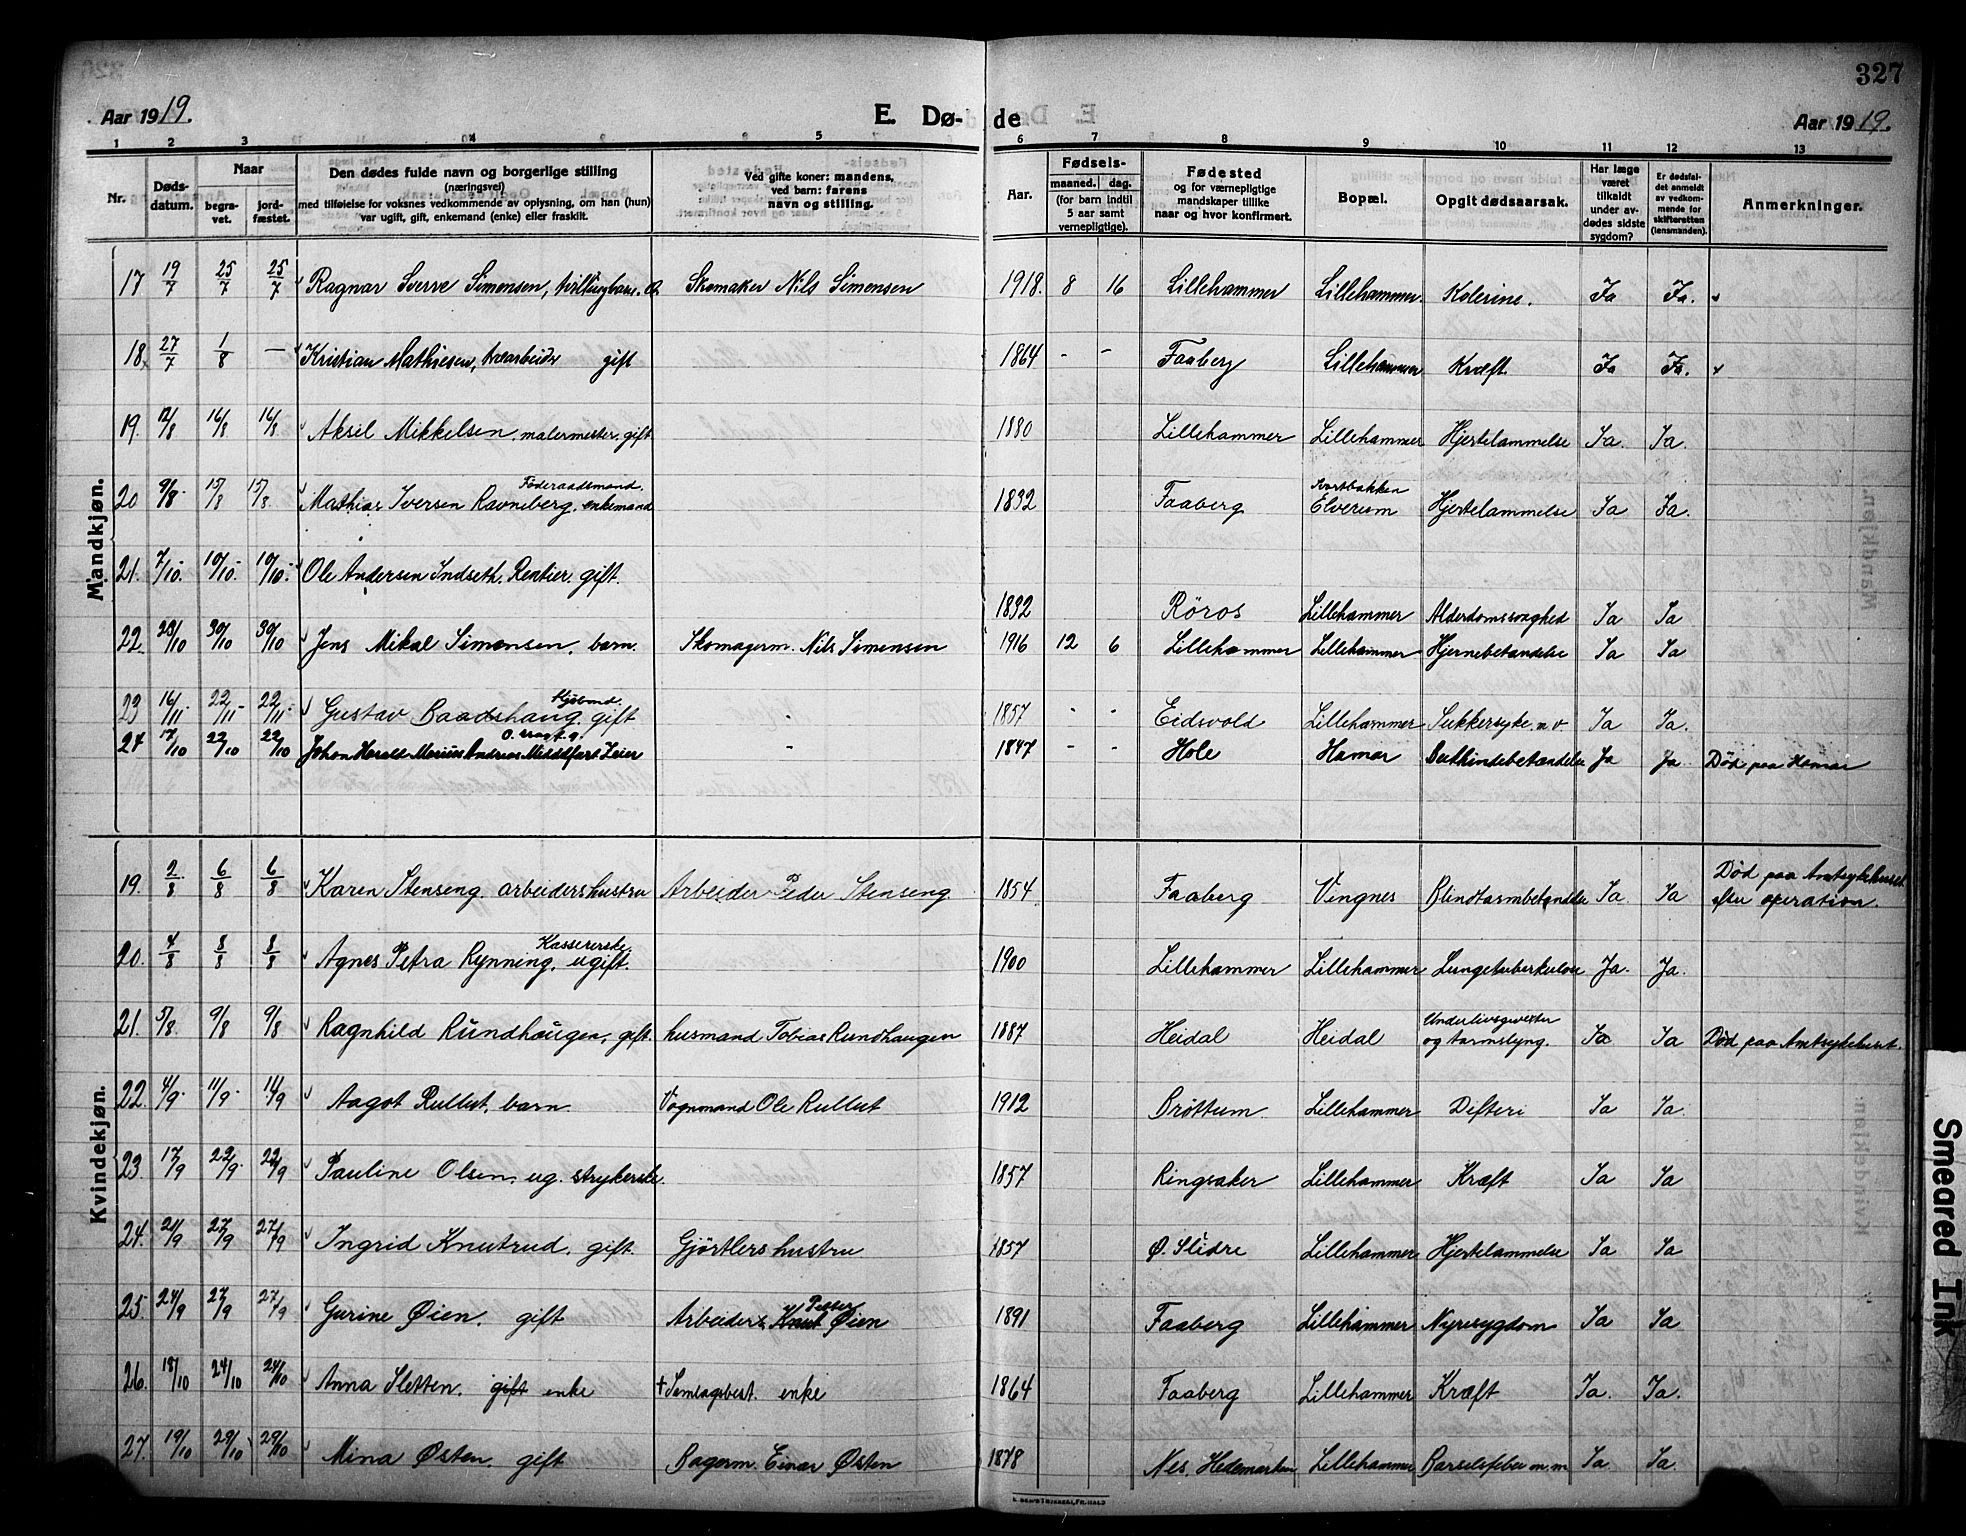 327
Aar 1919. E. Dø- de Aar 1919.
1 2 3 4 5 6 7 8 9 10 11 12 13
Nr. Døds-datum. Naar begra-vet. jord-fæstet. Den dødes fulde navn og borgerlige stilling (næringsvei) med tilføielse for voksnes vedkommende av oplysning, om han (hun) var ugift, gift, enkemand (enke) eller fraskilt. Ved gifte koner: mandens, ved barn: farens navn og stilling. Aar. Fødsels- maaned. dag. (for barn indtil 5 aar samt vernepligtige). Fødested og for værnepligtige mandskaper tillike naar og hvor konfirmert. Bopæl. Opgit dødsaarsak. Har læge været tilkaldt under av-dødes sidste sygdom? Er dødsfal-det anmeldt av vedkom-mende for skifteretten (lensmanden). Anmerkninger.
Mandkjøn.
17 19/7 25/7 25/7 Ragnar Sverre Simonsen, tvillingbarn. Skomaker Nils Simonsen 1918. 8 16 Lillehammer Lillehammer. Kolerine. Ja Ja.
18 27/7 1/8 — Kristian Mathiesen, træarbeider gift 1864 - - Faaberg Lillehammer Kræft. Ja Ja.
19. 12/8 16/8 16/8 Aksel Mikkelsen, malermester, gift 1880 Lillehammer Lillehammer Hjertelammelse Ja. Ja.
20 9/8. 15/8 15/8. Mathias Iversen Ravneberg, Føderaadsmand. enkemand 1832 Faaberg Svartbakken Elverum Hjertelammelse Ja Ja.
21. 7/10. 10/10. 10/10. Ole Andersen Indseth. Rentier. gift. 1832 Röros Lillehammer Alderdomssvaghed Ja Ja
22. 23/10 30/10 30/10 Jens Mikal Simonsen, barn. Skomagerm. Nils Simonsen 1916 12 6 Lillehammer Lillehammer Hjernebetændelse Ja Ja
23 16/11 22/11 22/11 Gustav Baadshaug. gift 1857 - - Eidsvold Lillehammer Sukkersyke m.v. Ja Ja.
24 17/10 22/10 22/10 Johan Harald Marius Andreas Middelfart Leier 1847 - - Hole Hamar Ja Ja. Død paa Hamar
Kvindekjøn.
19. 2/8 6/8 6/8 Karen Stenseng. arbeidershustru Arbeider Peder Stenseng 1854 Faaberg Vingnes Blindtarmbetændelse Ja. Ja Död paa Amtsykehuset efter operation.
20. 4/8 8/8 8/8 Agnes Petra Rynning. Kassererske. ugift. 1900 Lillehammer Lillehammer Lungetuberkulose Ja. Ja.
21. 5/8. 9/8 9/8 Ragnhild Rundhaugen, gift. husmand Tobias Rundhaugen 1887 Heidal Heidal Underlivsgevexter og tarmslyng. Ja Ja Död paa Amtsykehuset.
22. 4/9. 11/9. 11/9 Aagot Rullut. barn Vognmand Ole Rullut 1912 Bröttum Lillehammer Difteri Ja Ja.
23. 17/9 22/9. 22/9 Pauline Olsen, ug. strykerske. 1857 Ringsaker Lillehammer Kræft Ja Ja
24. 21/9 27/9 27/9 Ingrid Knutrud. gift. Gjörtlers hustru 1857 Ø. Slidre Lillehammer Hjertelammelse Ja Ja
25. 24/9 27/9 27/9 Gurine Øien. gift Arbeider Knut Petter Øien 1891 Faaberg Lillehammer Nyresygdom Ja Ja
26. 18/10 24/10 24/10 Anna Sletten. gift enke + Samlagsbest. enke 1864 Faaberg Lillehammer Kræft Ja. Ja.
27. 19/10 29/10 29/10 Mina Østen. gift Bagerm. Einar Østen 1878 Nes. Hedemarken Lillehammer Barselsfeber m.m Ja. Ja.
Smeared Ink